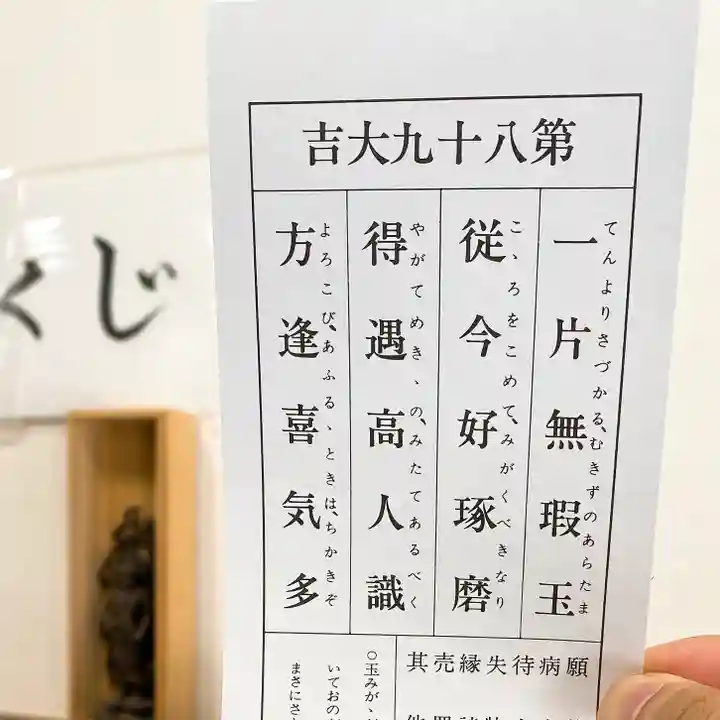 第八十九大吉
一片無瑕玉
てんよりさづかる、むきずのあらたま
従今好琢磨
こゝろをこめて、みがくべきなり
得遇高人識
やがてめきゝの、みたてあるべく
方逢喜気多
よろこび、あふるゝときは、ちかきぞ
願病待失縁売其
○玉みがゝ
いておの
まさにさ
くじ